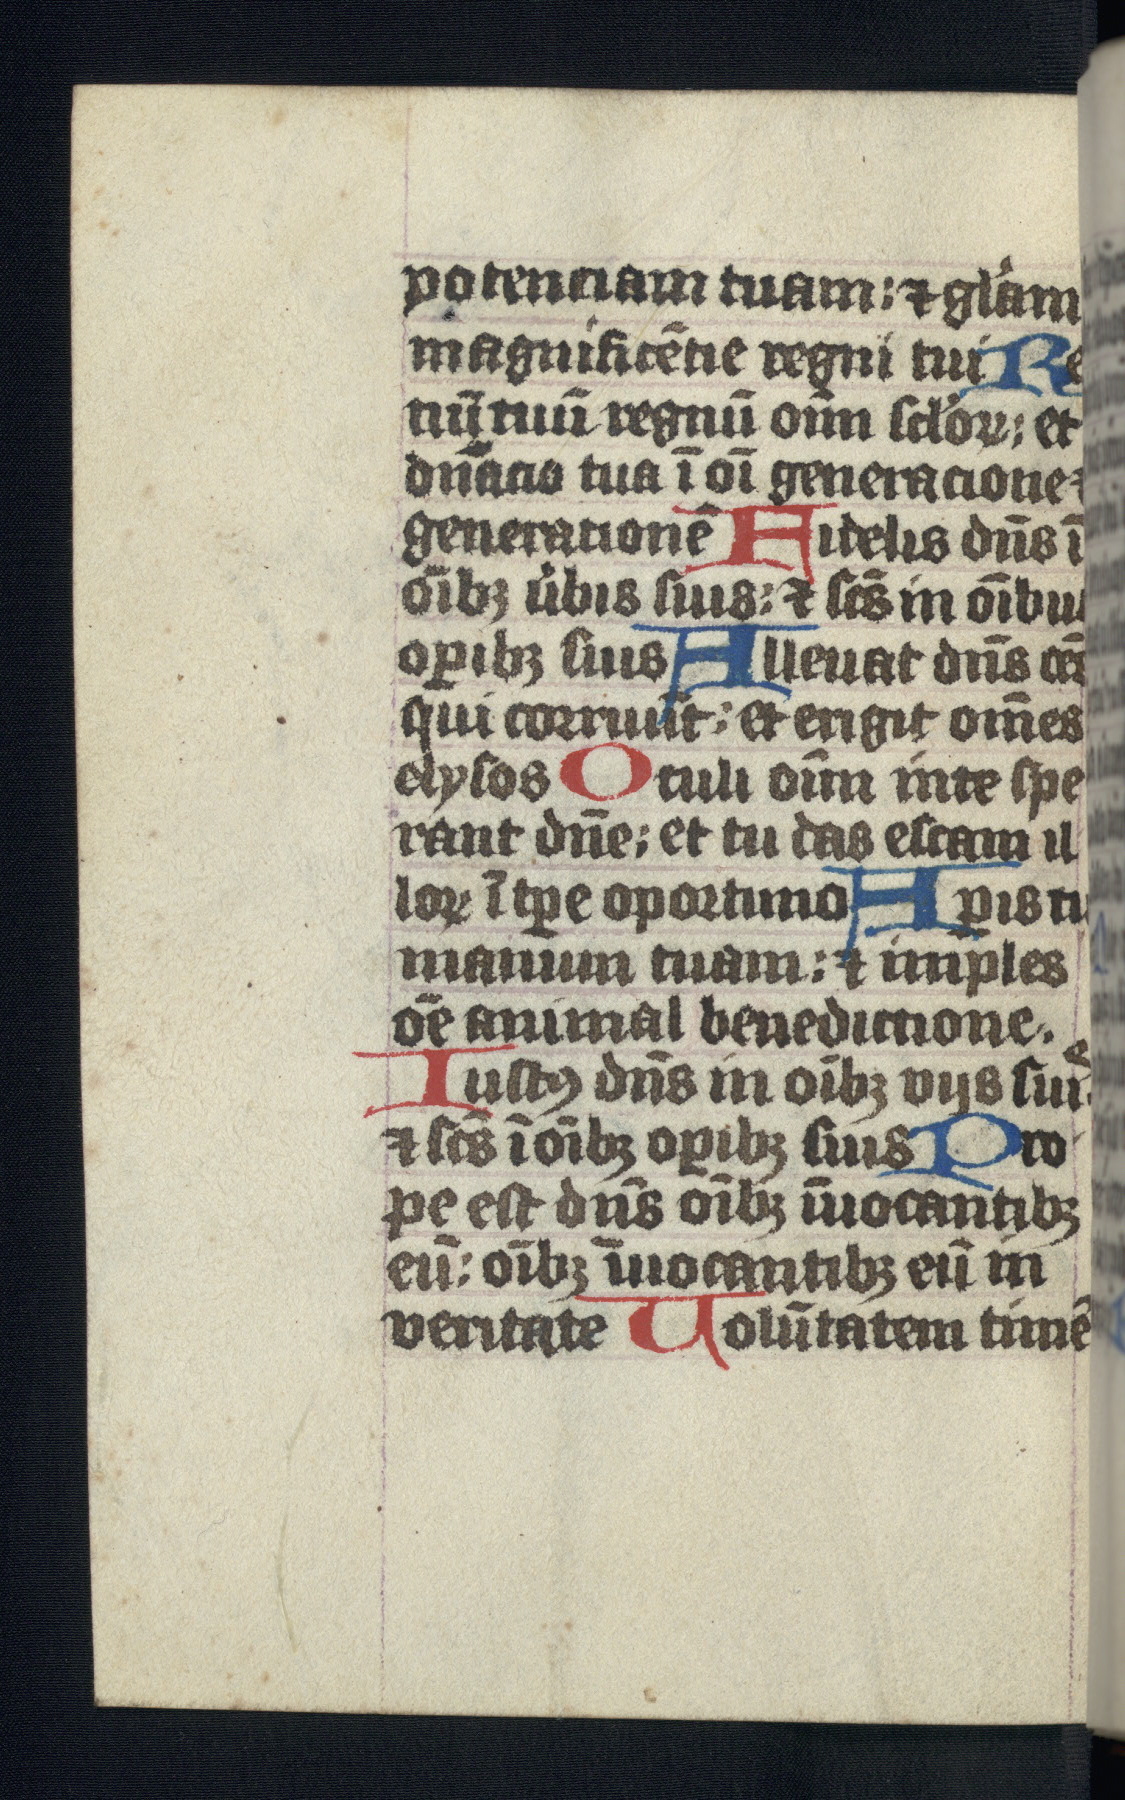 potenciam tuam: ⁊ gl̓am
magnificētie regni tui Re
nū tuū regnū om̄n sclo̓ꝝ; et
dn̄acio tua ī oī generacione ⁊
generationē Fidelis dn̄s ī
oībꝫ u̓bis suis: ⁊ scs̄ in oībus
oꝑibꝫ suis Alleuat dn̄s oēs
qui corruūt: et erigit om̄es
elysos Oculi oīm in te spe
rant dn̄e; et tu das escam il
loꝝ ī tp̄e oportuno Apis tu
manum tuam: ⁊ imples
oē animal benedictione.
Iustꝯ dn̄s in oībꝫ vijs suis
⁊ scs̄ ī oībꝫ oꝑibꝫ suis Pro
pe est dn̄s oībꝫ īuocantibꝫ
eū: oībꝫ īuocantibꝫ eū in
veritate Uolūtatem timē